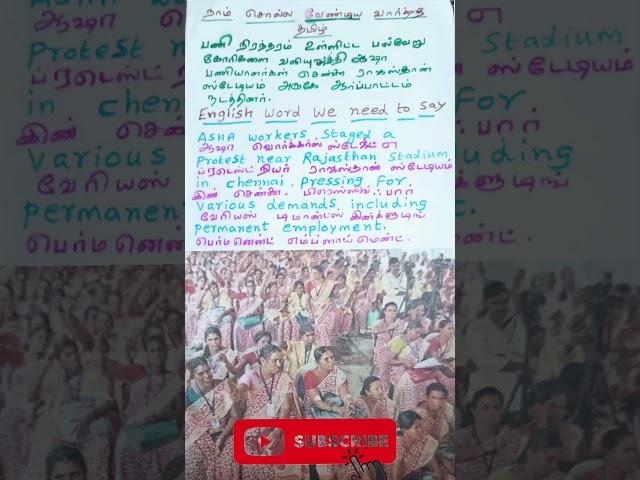 நாம் சொல்ல வேண்டிய வார்த்தை
தமிழ்
பணி நிரந்தரம் உள்ளிட்ட பல்வேறு
கோரிக்கை வலியுறுத்தி ஆஷா
பணியாளர்கள் சென்னை ராஜஸ்தான்
ஸ்டேடியம் அருகே ஆர்ப்பாட்டம்
நடத்தினர்.
English word we need to say
ASHA workers staged a
ஆஷா வொர்க்கர்ஸ் ஸ்டேஜ்ட் எ
Protest near Rajasthan Stadium
ப்ரடெஸ்ட் நியர் ராஜஸ்தான் ஸ்டேடியம்
in chennai, pressing For
இன் சென்னை, பிரஸ்ஸிங் ஃபார்
various demands, including
வேரியஸ் டிமாண்ட்ஸ் இன்க்ளுடிங்
permanent employment.
பெர்மனென்ட் எம்ப்ளாய்மென்ட்.
SUBSCRIBE